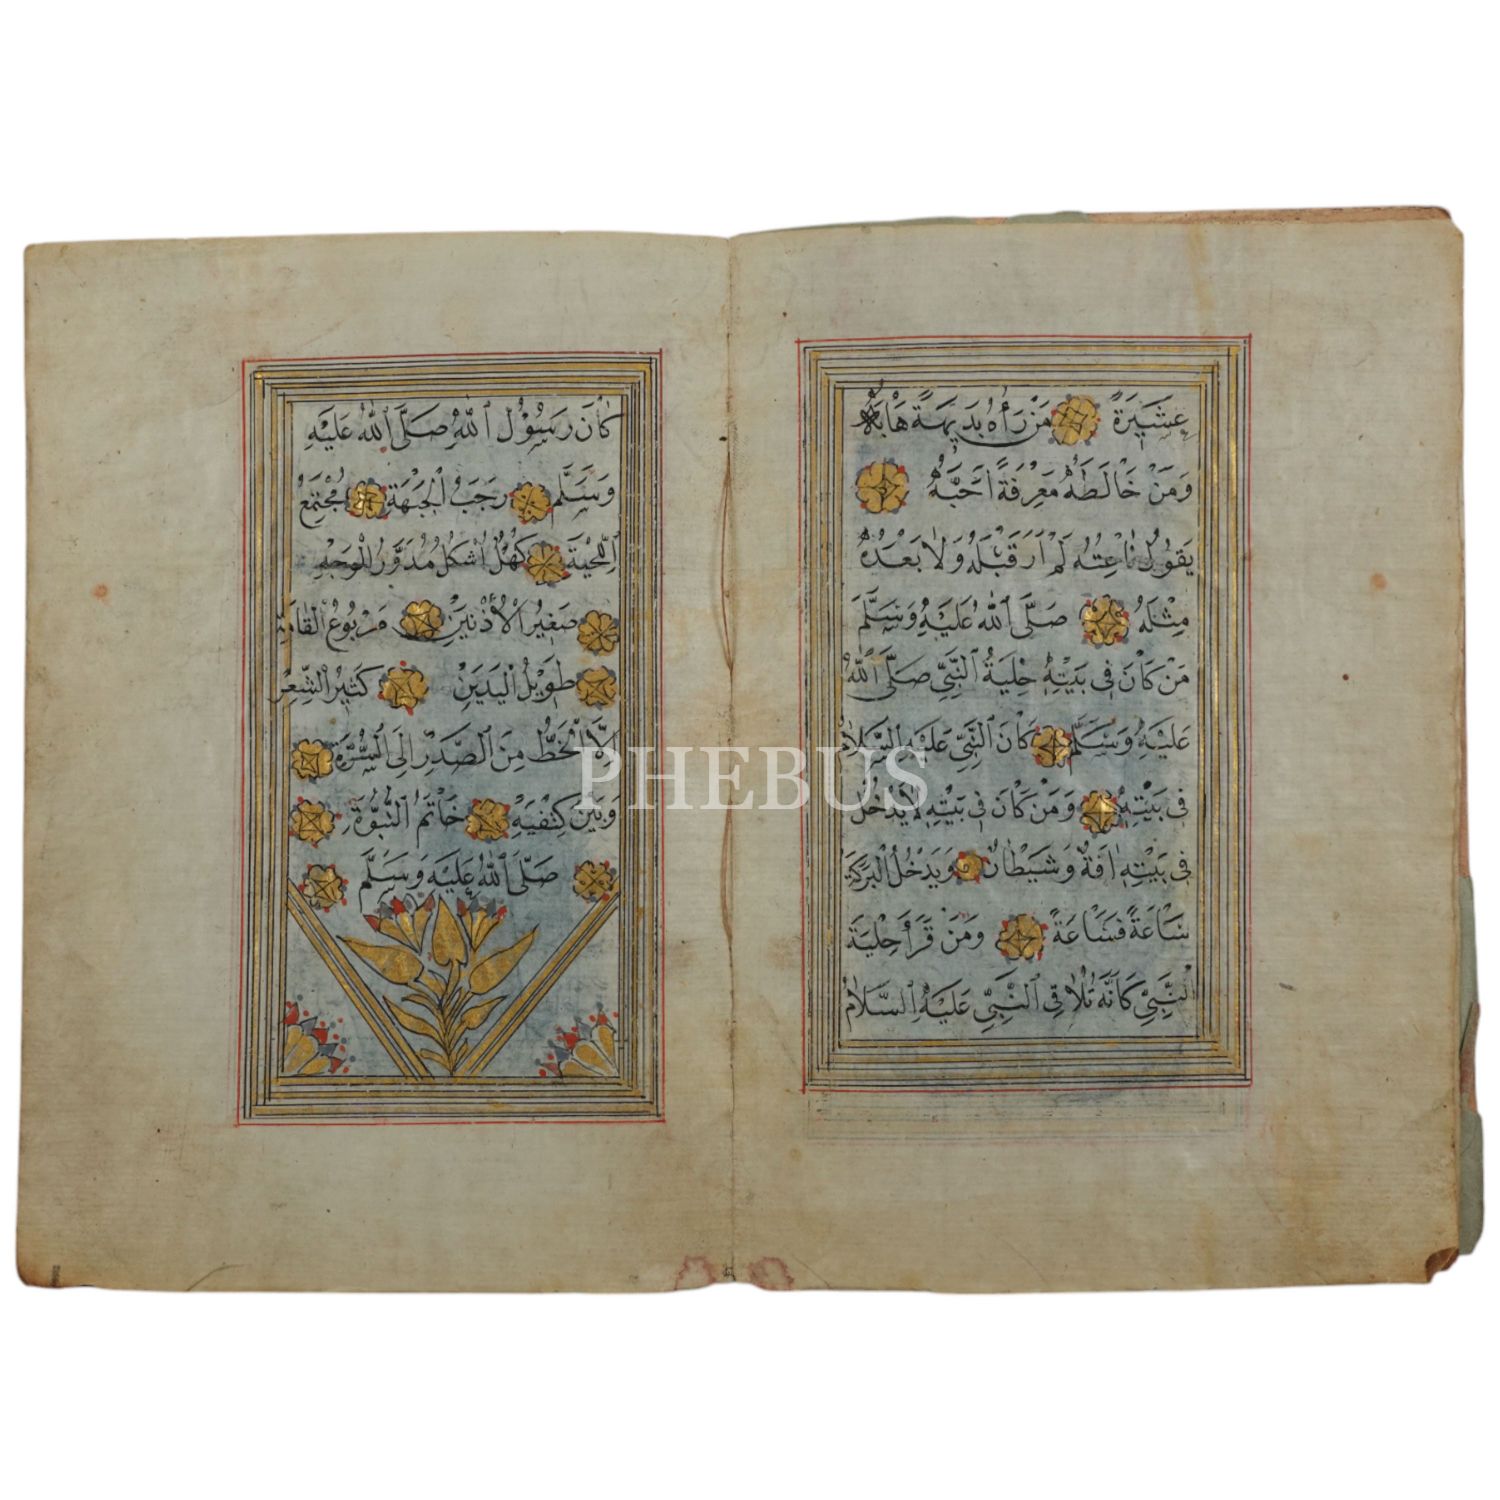 عَشِيرَةً مَنْ رَاٰهُ بَدِيهَةً هَابَهُ
وَمَنْ خَالَطَهُ مَعْرِفَةً اَحَبَّهُ
يَقُولُ نَاعِتُهُ لَمْ اَرَ قَبْلَهُ وَلَا بَعْدَهُ
مِثْلَهُ صَلَّى اللّٰهُ عَلَيْهِ وَسَلَّمَ
مَنْ كَانَ فِى بَيْتِهِ حِلْيَةُ النَّبِيِّ صَلَّى اللّٰهُ
عَلَيْهِ وَسَلَّمْ كَانَ النَّبِيِّ عَلَيْهِ السَّلَامُ
فِى بَيْتِهِ وَمَنْ كَانَ فِى بَيْتِهِ لَا يَدْخُلُ
فِى بَيْتِهِ اٰفَةٌ وَشَيْطَانٌ وَيَدْخُلُ الْبَرَكَةَ
سَاعَةً فَسَاعَةً وَمَنْ قَرَأَ حِلْيَةَ
النَّبِيِّ كَاَنَّهُ تُلَاقِى النَّبِيِّ عَلَيْهِ السَّلَامُ
كَانَ رَسُوْلُ اللّٰهِ صَلَّى اللّٰهُ عَلَيْهِ
وَسَلَّمَ رَحَبُ الْجَبْهَةِ مُجْتَمِعُ
اللِّحْيَةِ كَهْلُ اَشْكَلُ مُدَوَّرُ الْوَجْهِ
صَغِيْرُ الْأُذْنَيْنِ مَرْبُوعُ الْقَامَةِ
طَوِيْلُ الْيَدَيْنِ كَثِيْرُ الشَّعْرِ
اِلَّا الْخَطُّ مِنَ الصَّدْرِ اِلَى السُّرَّةِ
وَبَيْنَ كَتِفَيْهِ خَاتَمُ النُّبُوَّةِ
صَلَّى اللّٰهُ عَلَيْهِ وَسَلَّمَ
PHEBUS